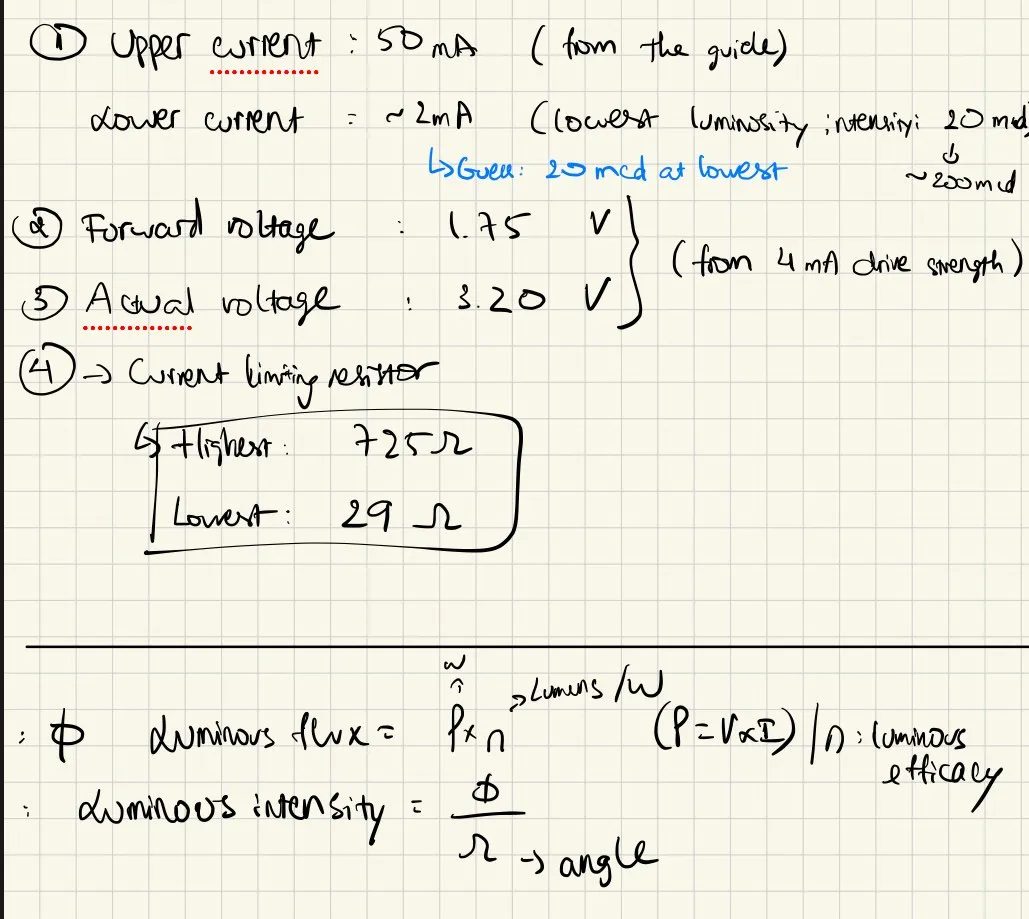 ① Upper current : 50 mA ( from the guide)
Lower current = ~ 2mA (lowest luminosity intensity: 20 mcd
↓
↳ Guess: 20 mcd at lowest
~200mcd
② Forward voltage : 1.75 V
(from 4 mA drive strength)
③ Actual voltage : 3.20 V
④ → Current limiting resistor
↳ Highest: 725Ω
Lowest: 29 Ω
W
↑ → Lumens /W
: ϕ Luminous flux = P x η (P = V x I) / η : luminous
efficacy
: Luminous intensity = ϕ
Ω → angle